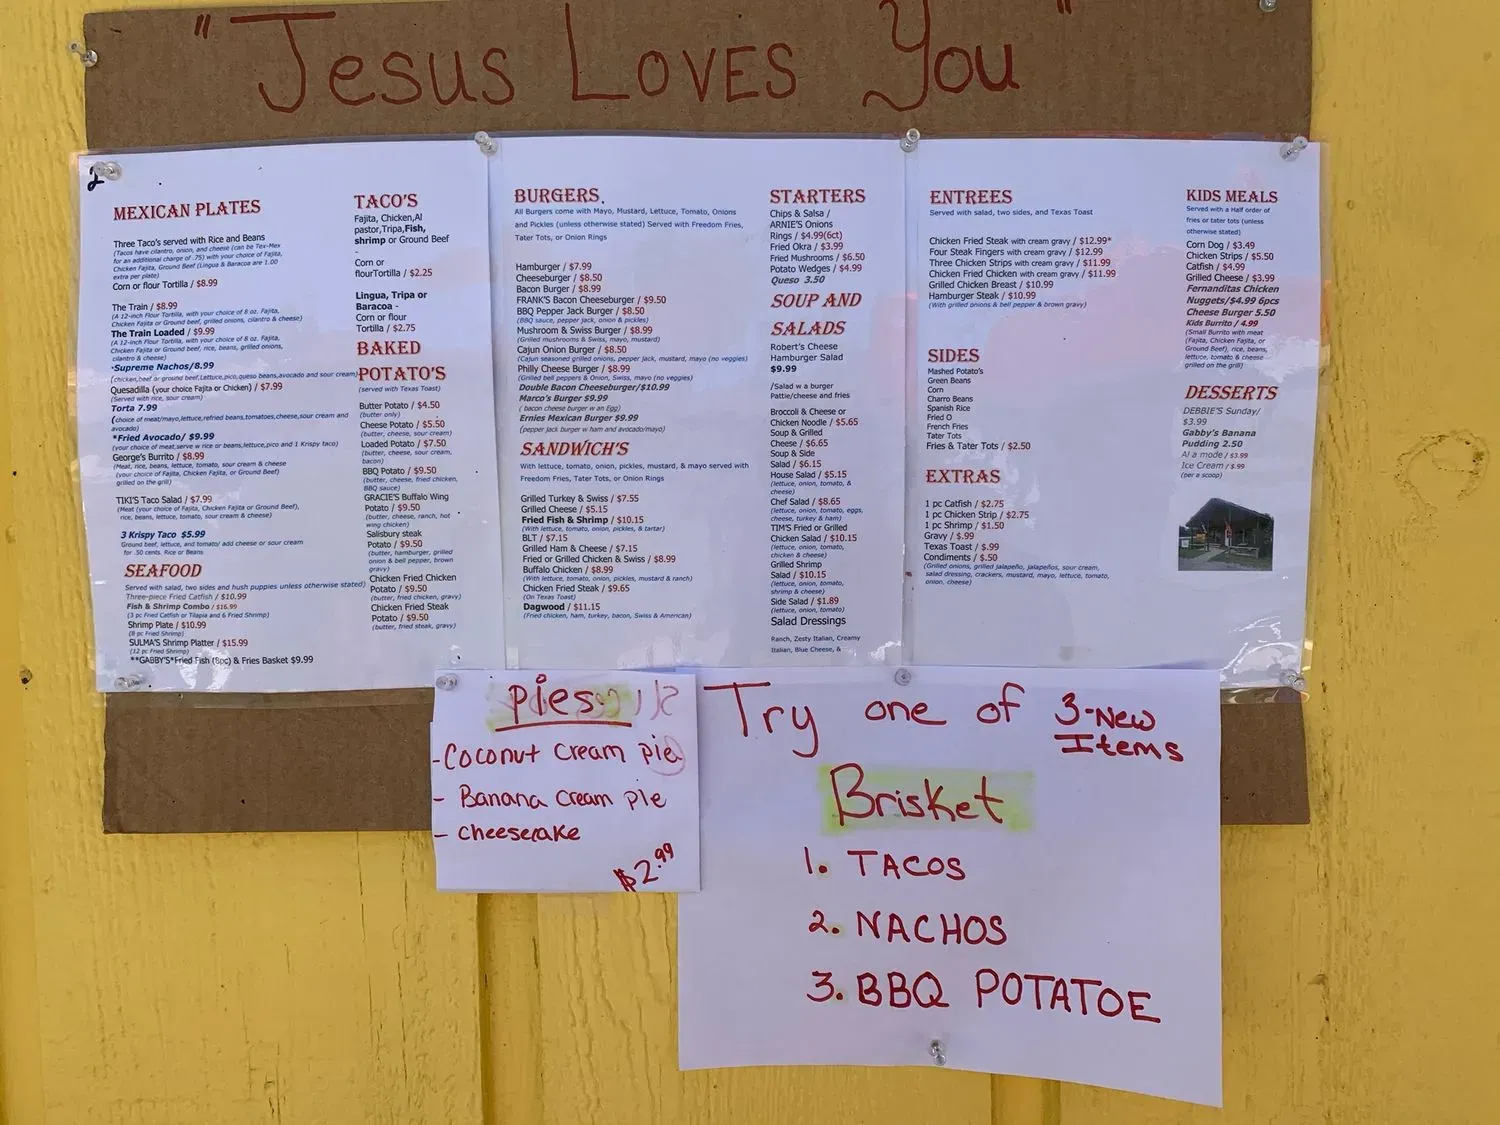 "Jesus Loves You"
2
MEXICAN PLATES
Three Taco's served with Rice and Beans
(Tacos have cilantro, onion, and cheese (can be Tex-Mex
for an additional charge of .75) with your choice of Fajita,
Chicken Fajita, Ground Beef (Lingua & Baracoa are 1.00
extra per plate)
Corn or flour Tortilla / $8.99
The Train / $8.99
(A 12-inch Flour Tortilla, with your choice of 8 oz. Fajita,
Chicken Fajita or Ground beef, grilled onions, cilantro & cheese)
The Train Loaded / $9.99
(A 12-inch Flour Tortilla, with your choice of 8 oz. Fajita,
Chicken Fajita or Ground beef, rice, beans, grilled onions,
cilantro & cheese)
*Supreme Nachos/8.99
(chicken,beef or ground beef,Lettuce,pico,queso beans,avocado and sour cream)
Quesadilla (your choice Fajita or Chicken) / $7.99
(Served with rice, sour cream)
Torta 7.99
(choice of meat/mayo,lettuce,refried beans,tomatoes,cheese,sour cream and
avocado)
*Fried Avocado/ $9.99
(your choice of meat,serve w rice or beans,lettuce,pico and 1 Krispy taco)
George's Burrito / $8.99
(Meat, rice, beans, lettuce, tomato, sour cream & cheese
(your choice of Fajita, Chicken Fajita, or Ground Beef)
grilled on the grill)
TIKI'S Taco Salad / $7.99
(Meat (your choice of Fajita, Chicken Fajita or Ground Beef),
rice, beans, lettuce, tomato, sour cream & cheese)
3 Krispy Taco $5.99
Ground beef, lettuce, and tomato/ add cheese or sour cream
for .50 cents. Rice or Beans
SEAFOOD
Served with salad, two sides and hush puppies unless otherwise stated)
Three-piece Fried Catfish / $10.99
Fish & Shrimp Combo / $16.99
(3 pc Fried Catfish or Tilapia and 6 Fried Shrimp)
Shrimp Plate / $10.99
(8 pc Fried Shrimp)
SULMA'S Shrimp Platter / $15.99
(12 pc Fried Shrimp)
**GABBY'S*Fried Fish (8pc) & Fries Basket $9.99
TACO'S
Fajita, Chicken,Al
pastor,Tripa,Fish,
shrimp or Ground Beef
-
Corn or
flourTortilla / $2.25
Lingua, Tripa or
Baracoa -
Corn or flour
Tortilla / $2.75
BAKED
POTATO'S
(served with Texas Toast)
Butter Potato / $4.50
(butter only)
Cheese Potato / $5.50
(butter, cheese, sour cream)
Loaded Potato / $7.50
(butter, cheese, sour cream,
bacon)
BBQ Potato / $9.50
(butter, cheese, fried chicken,
BBQ sauce)
GRACIE'S Buffalo Wing
Potato / $9.50
(butter, cheese, ranch, hot
wing chicken)
Salisbury steak
Potato / $9.50
(butter, hamburger, grilled
onion & bell pepper, brown
gravy)
Chicken Fried Chicken
Potato / $9.50
(butter, fried chicken, gravy)
Chicken Fried Steak
Potato / $9.50
(butter, fried steak, gravy)
BURGERS
All Burgers come with Mayo, Mustard, Lettuce, Tomato, Onions
and Pickles (unless otherwise stated) Served with Freedom Fries,
Tater Tots, or Onion Rings
Hamburger / $7.99
Cheeseburger / $8.50
Bacon Burger / $8.99
FRANK'S Bacon Cheeseburger / $9.50
BBQ Pepper Jack Burger / $8.50
(BBQ sauce, pepper jack, onion & pickles)
Mushroom & Swiss Burger / $8.99
(Grilled mushrooms & Swiss, mayo, mustard)
Cajun Onion Burger / $8.50
(Cajun seasoned grilled onions, pepper jack, mustard, mayo (no veggies)
Philly Cheese Burger / $8.99
(Grilled bell peppers & Onion, Swiss, mayo (no veggies)
Double Bacon Cheeseburger/$10.99
Marco's Burger $9.99
( bacon cheese burger w an Egg)
Ernies Mexican Burger $9.99
(pepper jack burger w ham and avocado/mayo)
SANDWICH'S
With lettuce, tomato, onion, pickles, mustard, & mayo served with
Freedom Fries, Tater Tots, or Onion Rings
Grilled Turkey & Swiss / $7.55
Grilled Cheese / $5.15
Fried Fish & Shrimp / $10.15
(With lettuce, tomato, onion, pickles, & tartar)
BLT / $7.15
Grilled Ham & Cheese / $7.15
Fried or Grilled Chicken & Swiss / $8.99
Buffalo Chicken / $8.99
(With lettuce, tomato, onion, pickles, mustard & ranch)
Chicken Fried Steak / $9.65
(On Texas Toast)
Dagwood / $11.15
(Fried chicken, ham, turkey, bacon, Swiss & American)
STARTERS
Chips & Salsa /
ARNIE'S Onions
Rings / $4.99(6ct)
Fried Okra / $3.99
Fried Mushrooms / $6.50
Potato Wedges / $4.99
Queso 3.50
SOUP AND
SALADS
Robert's Cheese
Hamburger Salad
$9.99
/Salad w a burger
Pattie/cheese and fries
Broccoli & Cheese or
Chicken Noodle / $5.65
Soup & Grilled
Cheese / $6.65
Soup & Side
Salad / $6.15
House Salad / $5.15
(lettuce, onion, tomato, &
cheese)
Chef Salad / $8.65
(lettuce, onion, tomato, eggs,
cheese, turkey & ham)
TIM'S Fried or Grilled
Chicken Salad / $10.15
(lettuce, onion, tomato,
chicken & cheese)
Grilled Shrimp
Salad / $10.15
(lettuce, onion, tomato,
shrimp & cheese)
Side Salad / $1.89
(lettuce, onion, tomato)
Salad Dressings
Ranch, Zesty Italian, Creamy
Italian, Blue Cheese, &
ENTREES
Served with salad, two sides, and Texas Toast
Chicken Fried Steak with cream gravy / $12.99*
Four Steak Fingers with cream gravy / $12.99
Three Chicken Strips with cream gravy / $11.99
Chicken Fried Chicken with cream gravy / $11.99
Grilled Chicken Breast / $10.99
Hamburger Steak / $10.99
(With grilled onions & bell pepper & brown gravy)
SIDES
Mashed Potato's
Green Beans
Corn
Charro Beans
Spanish Rice
Fried O
French Fries
Tater Tots
Fries & Tater Tots / $2.50
EXTRAS
1 pc Catfish / $2.75
1 pc Chicken Strip / $2.75
1 pc Shrimp / $1.50
Gravy / $.99
Texas Toast / $.99
Condiments / $.50
(Grilled onions, grilled jalapeño, jalapeños, sour cream,
salad dressing, crackers, mustard, mayo, lettuce, tomato,
onion, cheese)
KIDS MEALS
Served with a Half order of
fries or tater tots (unless
otherwise stated)
Corn Dog / $3.49
Chicken Strips / $5.50
Catfish / $4.99
Grilled Cheese / $3.99
Fernanditas Chicken
Nuggets/$4.99 6pcs
Cheese Burger 5.50
Kids Burrito / 4.99
(Small Burrito with meat
(Fajita, Chicken Fajita,
or Ground Beef), rice, beans,
lettuce, tomato & cheese
grilled on the grill)
DESSERTS
DEBBIE'S Sunday/
$3.99
Gabby's Banana
Pudding 2.50
Al a mode / $3.99
Ice Cream / $.99
(per a scoop)
Pies
- Coconut Cream pie
- Banana Cream Pie
- Cheesecake
$2.99
Try one of 3-New
Items
Brisket
1. TACOS
2. NACHOS
3. BBQ POTATOE